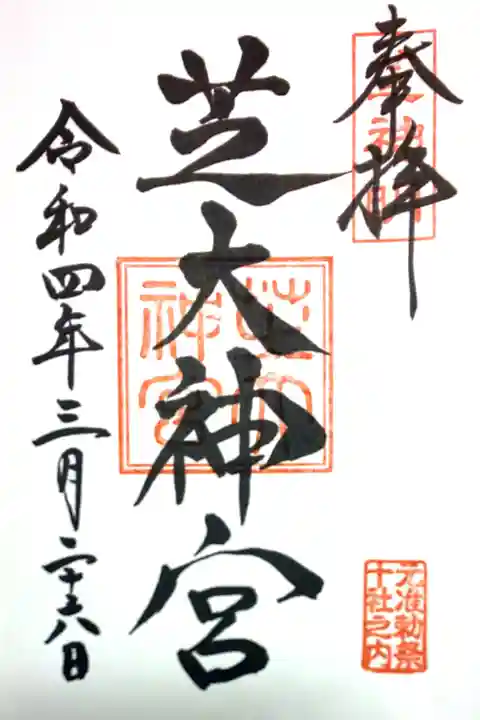 奉拝
芝神明
元准勅祭
十社之内
芝大神宮
芝大
神宮
令和四年三月二十六日